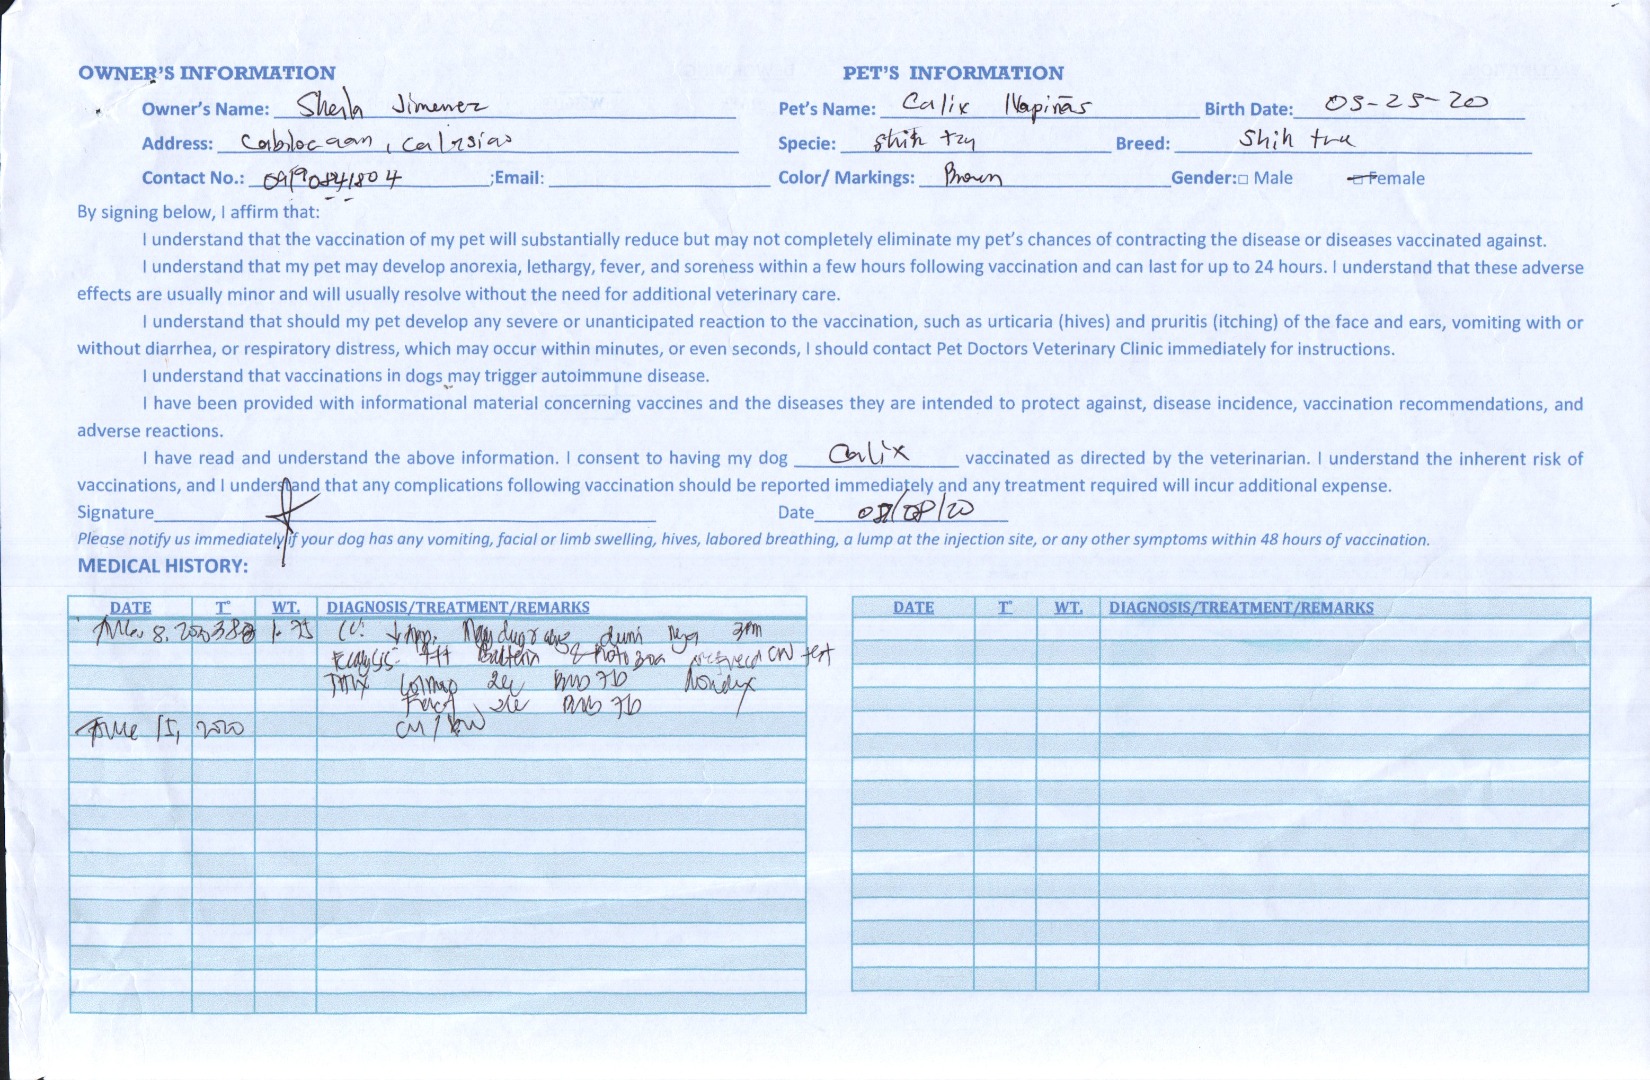 OWNER'S INFORMATION
PET'S INFORMATION
Owner's Name: Sheila Jimenez
Pet's Name: Calix Napiñas Birth Date: 05-25-20
Address: Cabilocaan, Calasiao
Specie: Shih tzu Breed: Shih tzu
Contact No.: 09190841804 ;Email:
Color/ Markings: Brown Gender:□ Male □ Female
By signing below, I affirm that:
I understand that the vaccination of my pet will substantially reduce but may not completely eliminate my pet's chances of contracting the disease or diseases vaccinated against.
I understand that my pet may develop anorexia, lethargy, fever, and soreness within a few hours following vaccination and can last for up to 24 hours. I understand that these adverse
effects are usually minor and will usually resolve without the need for additional veterinary care.
I understand that should my pet develop any severe or unanticipated reaction to the vaccination, such as urticaria (hives) and pruritis (itching) of the face and ears, vomiting with or
without diarrhea, or respiratory distress, which may occur within minutes, or even seconds, I should contact Pet Doctors Veterinary Clinic immediately for instructions.
I understand that vaccinations in dogs may trigger autoimmune disease.
I have been provided with informational material concerning vaccines and the diseases they are intended to protect against, disease incidence, vaccination recommendations, and
adverse reactions.
I have read and understand the above information. I consent to having my dog Calix vaccinated as directed by the veterinarian. I understand the inherent risk of
vaccinations, and I understand that any complications following vaccination should be reported immediately and any treatment required will incur additional expense.
Signature Date 08/08/20
Please notify us immediately if your dog has any vomiting, facial or limb swelling, hives, labored breathing, a lump at the injection site, or any other symptoms within 48 hours of vaccination.
MEDICAL HISTORY:
DATE T° WT. DIAGNOSIS/TREATMENT/REMARKS
8, 2020 1.75 3pm
Fecalysis- +++ Bacteria & Protozoa CW test
2cc 7D
7D
June 15, 2020
DATE T° WT. DIAGNOSIS/TREATMENT/REMARKS